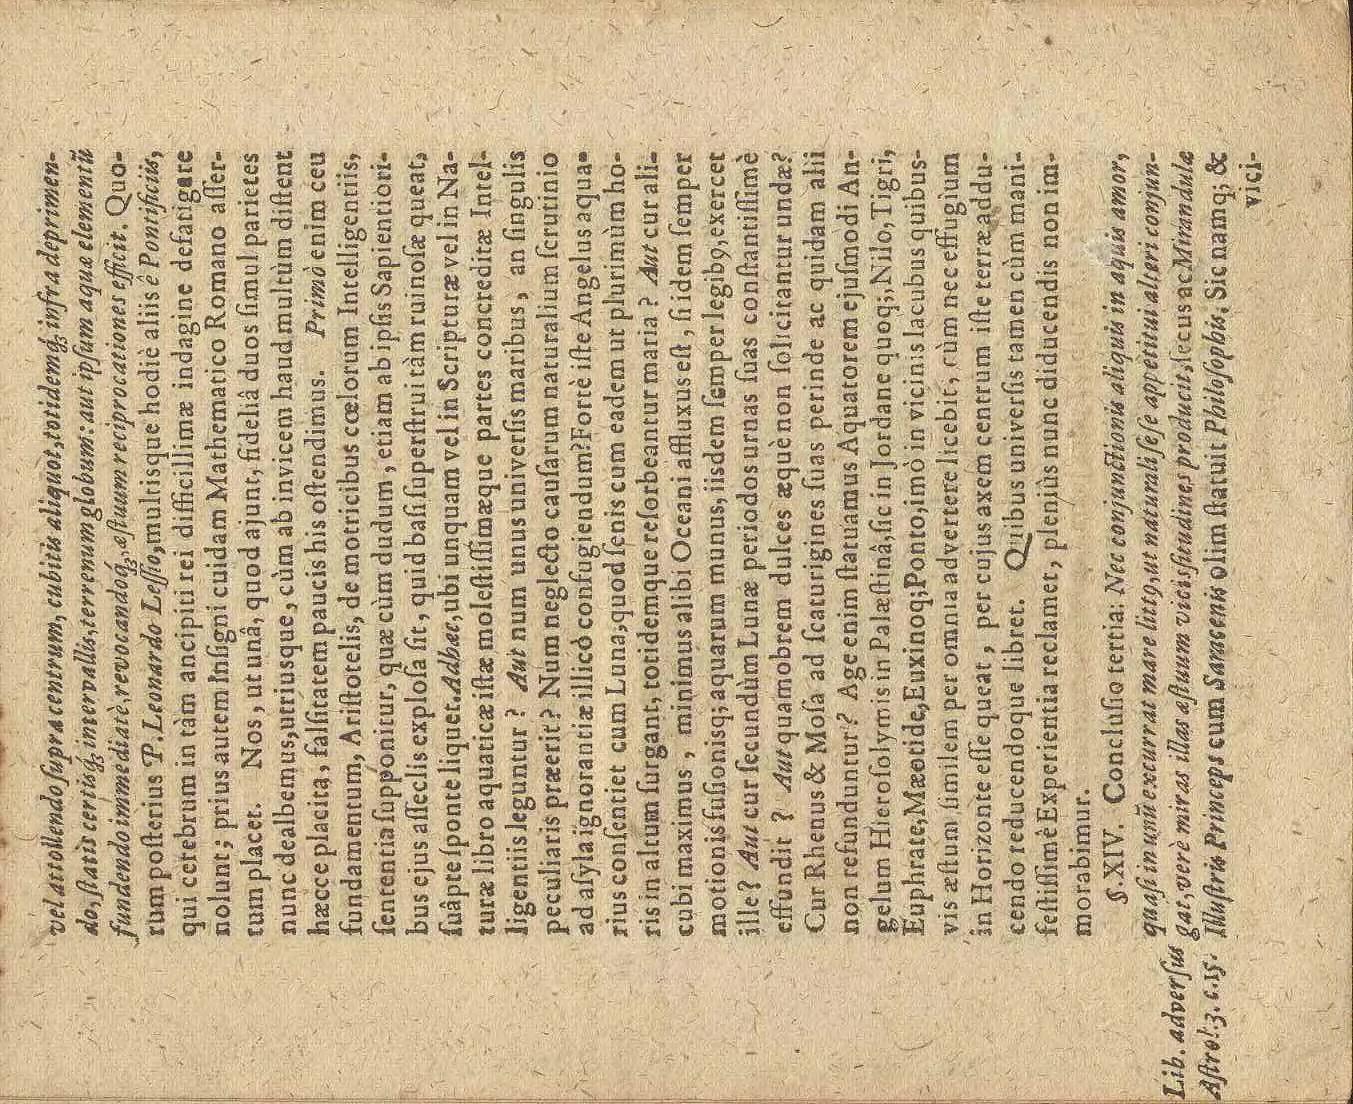 vel attollendo supra centrum, cubitis aliquot, totidemq́; infra deprimen-
do, statis certisq́; intervallis, terrenum globum: aut ipsum aquæ elementũ
fundendo immediatè, revocandoq́; æstuum reciprocationes efficit. Quo-
rum posterius P. Leonardo Lessio, multisque hodiè aliis è Pontificiis,
qui cerebrum in tàm ancipiti rei difficillimæ indagine defatigare
nolunt; prius autem Insigni cuidam Mathematico Romano asser-
tum placet. Nos, ut unâ, quod ajunt, fideliâ duos simul parietes
nunc dealbemus, utriusque, cùm ab invicem haud multùm distent
hæcce placita, falsitatem paucis his ostendimus. Primò enim ceu
fundamentum, Aristotelis, de motricibus cœlorum Intelligentiis,
sententia supponitur, quæ cùm dudum, etiam ab ipsis Sapientiori-
bus ejus asseclis explosa sit, quid basi superstrui tàm ruinosæ queat,
suâpte sponte liquet. Adhæc, ubi unquam vel in Scripturæ vel in Na-
turæ libro aquaticæ istæ molestissimæque partes concreditæ Intel-
ligentiis leguntur? Aut num unus universis maribus, an singulis
peculiaris præerit? Num neglecto causarum naturalium scrutinio
ad asyla ignorantiæ illicò confugiendum? Fortè iste Angelus aqua-
rius consentiet cum Luna, quod senis cum eadem ut plurimùm ho-
ris in altum surgant, totidemque resorbeantur maria? Aut cur ali-
cubi maximus, minimus alibi Oceani affluxus est, si idem semper
motionis fusionisq; aquarum munus, iisdem semper legibꝰ, exercet
ille? Aut cur secundum Lunæ periodos urnas suas constantissimè
effundit? Aut quamobrem dulces æquè non solicitantur undæ?
Cur Rhenus & Mosa ad scaturigines suas perinde ac quidam alii
non refunduntur? Age enim statuamus Aquatorem ejusmodi An-
gelum Hierosolymis in Palæstinâ, sic in Jordane quoq;, Nilo, Tigri,
Euphrate, Mæotide, Euxinoq; Ponto, imò in vicinis lacubus quibus-
vis æstum similem per omnia advertere licebit, cùm nec effugium
in Horizonte esse queat, per cujus axem centrum iste terræ addu-
cendo reducendoque libret. Quibus universis tamen cùm mani-
festissimè Experientia reclamet, pleniùs nunc diducendis non im-
morabimur.
§. XIV. Conclusio tertia: Nec conjunctionis aliquis in aquis amor,
quasi in unũ excurrat mare littꝰ, ut naturali sese appetitui alteri conjun-
gat, verè miras illas æstuum vicissitudines producit, secus ac Mirandulæ
Illustris Princeps cum Saracenis olim statuit Philosophis, Sic namq; &
vici-
Lib. adversus
Astrol. 3. c. 15.